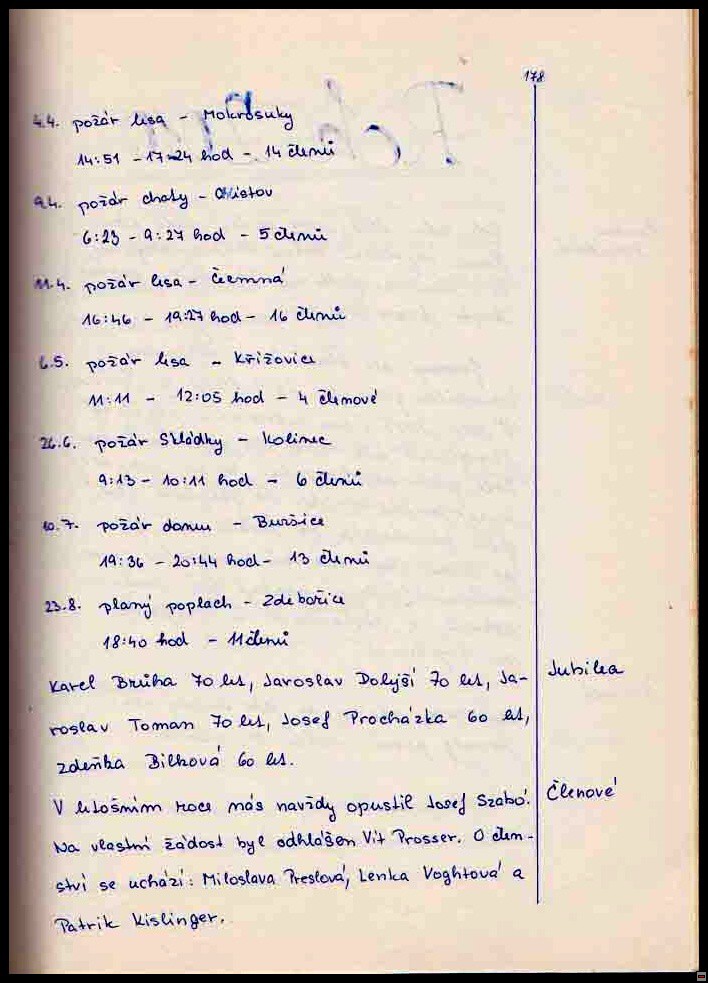 178
4.4. požár lesa - Mokrosuky
14:51 - 17:24 hod - 14 členů
9.4. požár chaty - Okistov
6:23 - 9:27 hod - 5 členů
11.4. požár lesa - Čeemná
16:46 - 19:27 hod - 16 členů
6.5. požár lesa - Křížovice
11:11 - 12:05 hod - 4 členové
26.6. požár skládky - Kolinec
9:13 - 10:11 hod - 6 členů
10.7. požár domu - Buršice
19:36 - 20:44 hod - 13 členů
23.8. planý poplach - Zdebořice
18:40 hod - 11 členů
Karel Brůha 70 let, Jaroslav Dolejší 70 let, Ja- Jubilea
roslav Toman 70 let, Josef Procházka 60 let,
Zdeňka Bílková 60 let.
V letošním roce nás navždy opustil Josef Szabó. Členové
Na vlastní žádost byl odhlášen Vít Prosser. O člen-
ství se uchází: Miloslava Preslová, Lenka Voghtová a
Patrik Kislinger.